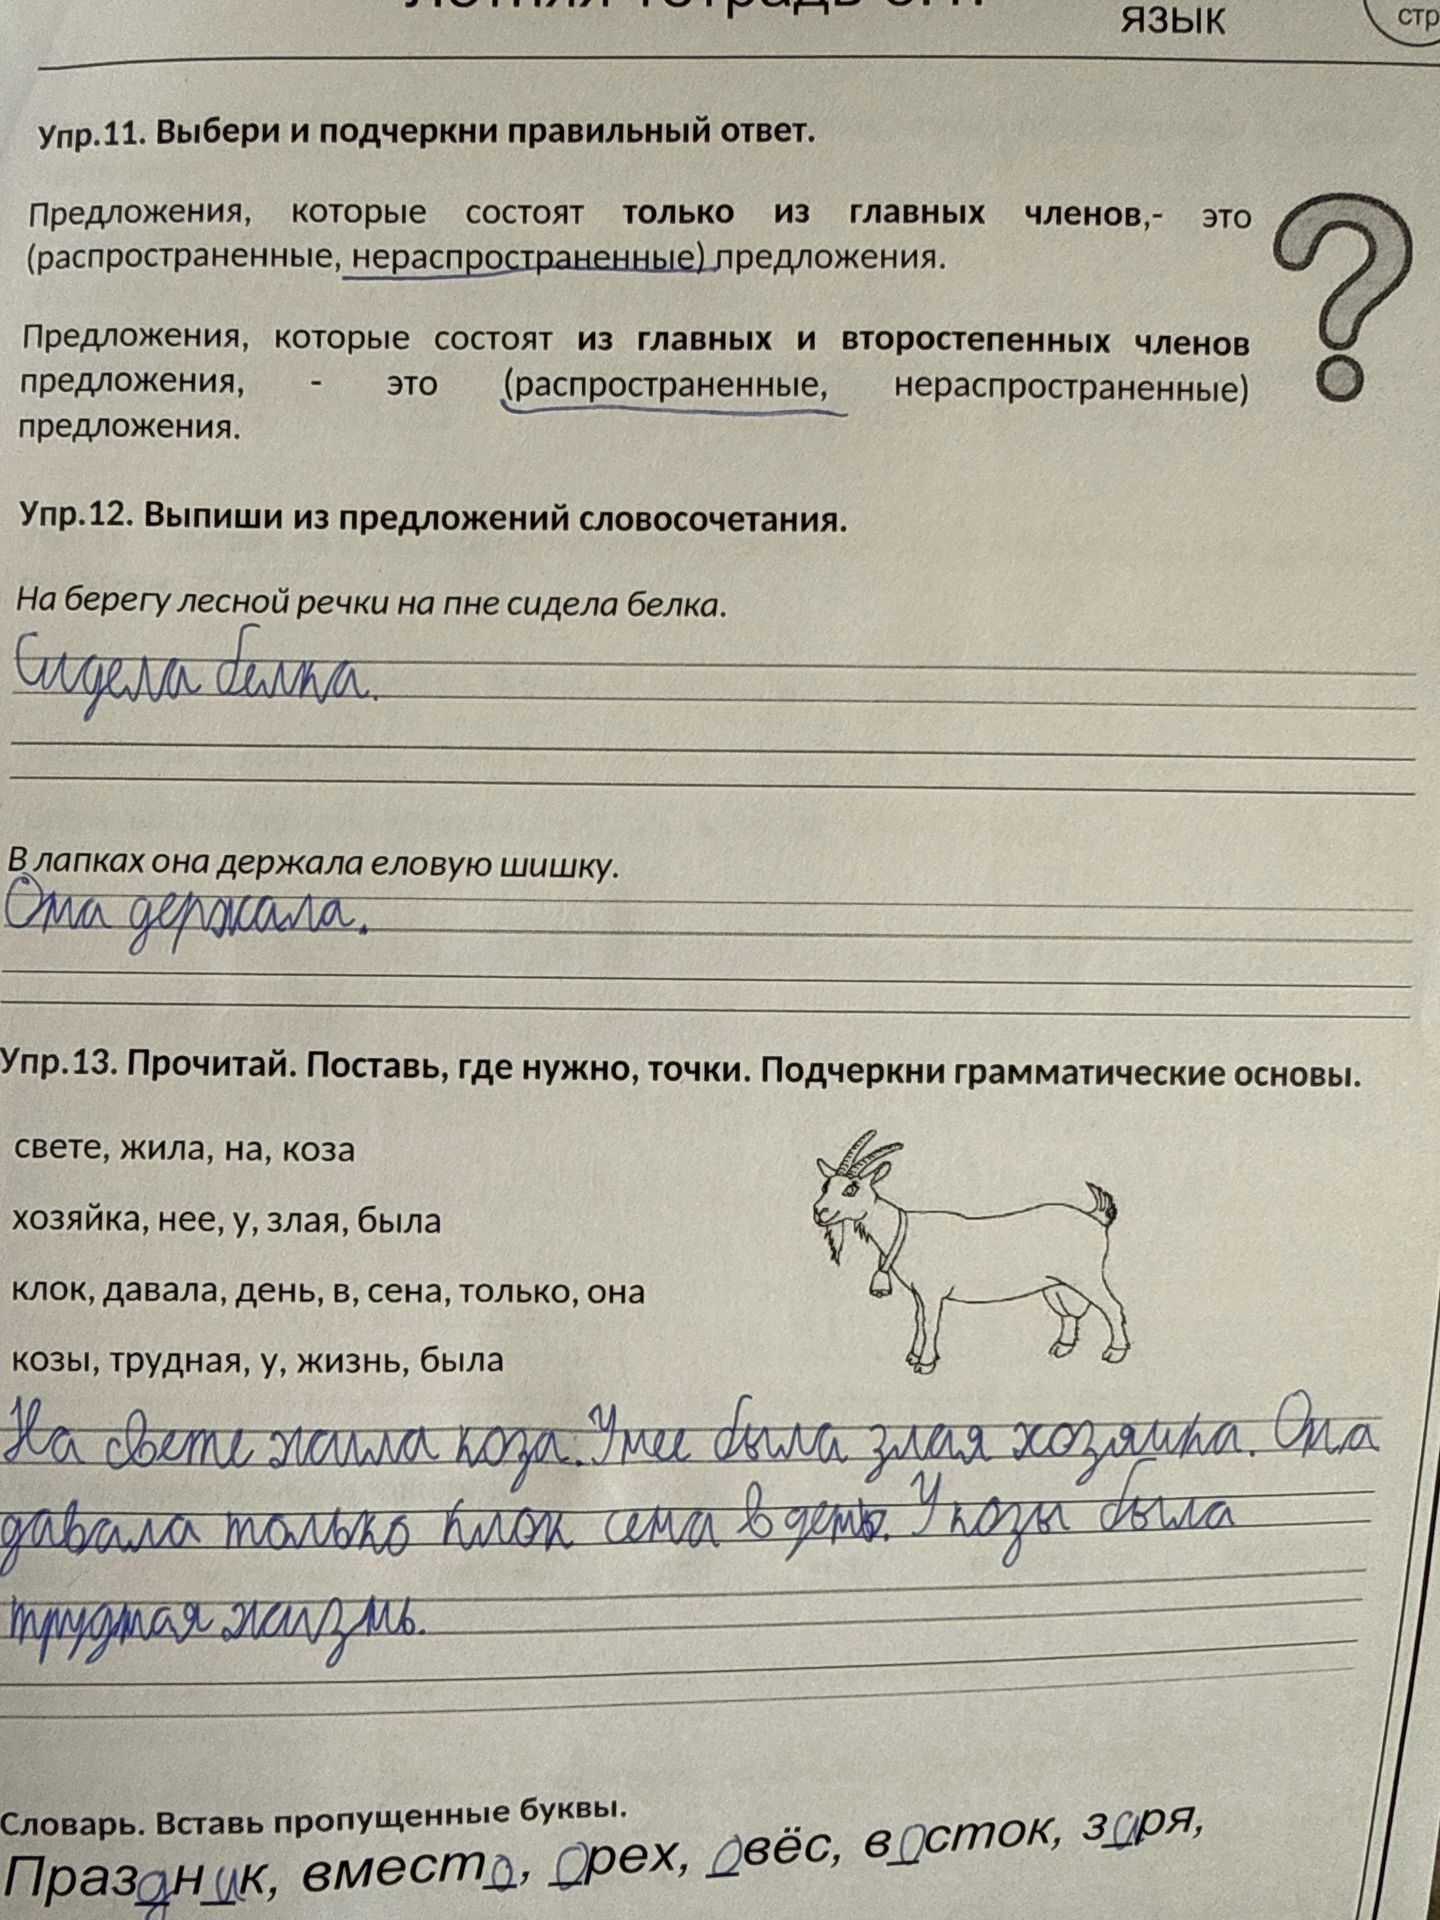 ЯЗЫК
стр
Упр.11. Выбери и подчеркни правильный ответ.
Предложения, которые состоят только из главных членов,- это
(распространенные, нераспространенные) предложения.
Предложения, которые состоят из главных и второстепенных членов
предложения, - это (распространенные, нераспространенные)
предложения.
Упр.12. Выпиши из предложений словосочетания.
На берегу лесной речки на пне сидела белка.
Сидела белка.
В лапках она держала еловую шишку.
Она держала.
Упр.13. Прочитай. Поставь, где нужно, точки. Подчеркни грамматические основы.
свете, жила, на, коза
хозяйка, нее, у, злая, была
клок, давала, день, в, сена, только, она
козы, трудная, у, жизнь, была
На свете жила коза. У нее была злая хозяика. Она
давала только клок сена в день. У козы была
трудная жизнь.
Словарь. Вставь пропущенные буквы.
Праздник, вместо, орех, овёс, восток, заря,